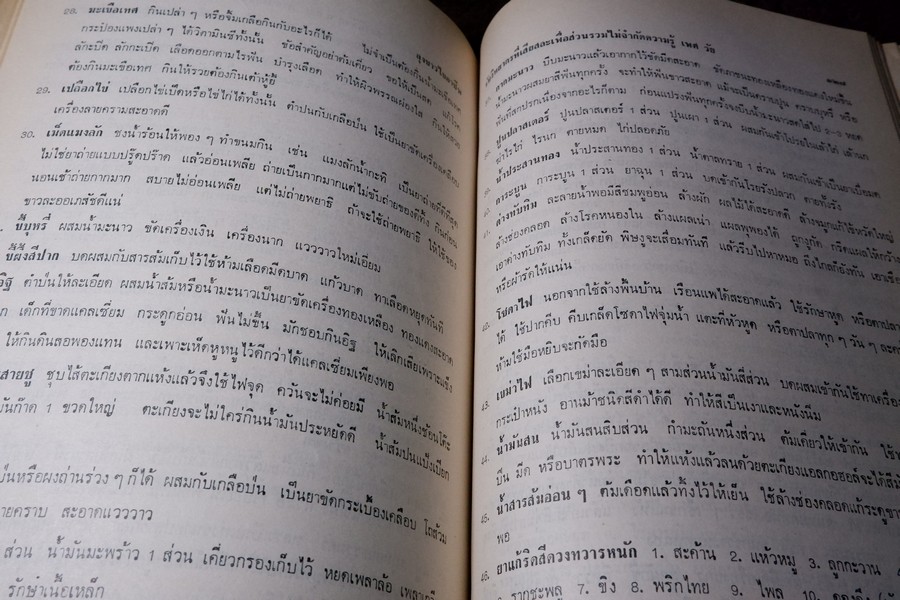 28. มะเขือเทศ กินเปล่า ๆ หรือจิ้มเกลือกินกับอะไรก็ได้ ไม่จำเป็นต้องกิน
กระป๋องแพงเปล่า ๆ ได้วิตามินซีทั้งนั้น ข้อสำคัญอย่าต้มเคี่ยว ขอให้เป็นสด
ลักปิด ลักกะเปิด เลือดออกตามไรฟัน บำรุงเลือด ทำให้ผิวพรรณผ่องใส
ต้องกินมะเขือเทศ กินให้รวยต้องกินเต้าหู้ยี้
29. เปลือกไข่ เปลือกไข่เป็ดหรือไข่ไก่ได้ทั้งนั้น ตำปนกับเกลือป่น ใช้เป็นยาขัดเครื่องเคลือบ
เครื่องลายครามสะอาดดี
30. เม็ดแมงลัก ชงน้ำร้อนให้พอง ๆ ทำขนมกิน เช่น แมงลักน้ำกะทิ เป็นยาถ่ายที่ดีที่สุด
ไม่ใช่ยาถ่ายแบบปรู๊ดปร๊าด แล้วอ่อนเพลีย ถ่ายเป็นกากมากแต่ไม่ขับถ่ายของดีทิ้ง กินก่อน
นอนเช้าถ่ายกากมาก สบายไม่อ่อนเพลีย แต่ไม่ถ่ายพยาธิ ถ้าจะใช้ถ่ายพยาธิ ให้ใช้ของ
ขาวละออเภสัชดีแน่
ขี้บุหรี่ ผสมน้ำมะนาว ขัดเครื่องเงิน เครื่องนาก แวววาวใหม่เอี่ยม
ขี้ผึ้งสีปาก บดผสมกับสารส้มเก็บไว้ใช้ห้ามเลือดมีดบาด แก้วบาด ทาเลือดหยุดทันที
อิฐ ตำป่นให้ละเอียด ผสมน้ำส้มหรือน้ำมะนาวเป็นยาขัดเครื่องทองเหลือง ทองแดงสะอาด
เด็กที่ขาดแคลเซี่ยม กระดูกอ่อน ฟันไม่ขึ้น มักชอบกินอิฐ ให้เลิกเสียเพราะแข็ง
ให้กินดินสอพองแทน และเพาะเห็ดหูหนูไว้ดีกว่าได้แคลเซี่ยมเพียงพอ
สายชู ชุบไส้ตะเกียงตากแห้งแล้วจึงใช้ไฟจุด ควันจะไม่ค่อยมี น้ำส้มหนึ่งช้อนโต๊ะ
มันก๊าด 1 ขวดใหญ่ ตะเกียงจะไม่ใคร่กินน้ำมันประหยัดดี น้ำส้มปนแป้งเปียก
ป่นหรือผงถ่านร่วง ๆ ก็ได้ ผสมกับเกลือป่น เป็นยาขัดกระเบื้องเคลือบ โถส้วม
คราบ สะอาดแวววาว
ส่วน น้ำมันมะพร้าว 1 ส่วน เคี่ยวกรองเก็บไว้ หยอดเพลาล้อ
รักษาเนื้อเหล็ก
วิทยาทานที่เสียสละเพื่อส่วนรวมไม่จำกัดความรู้ เพศ วัย
ปูนปลาสเตอร์ ปูนปลาสเตอร์ 1 ส่วน ปูนเผา 1 ส่วน
น้ำประสานทอง น้ำประสานทอง 1 ส่วน น้ำตาลทราย 1 ส่วน
การะบูน การะบูน 1 ส่วน ยาฉุน 1 ส่วน บดเข้ากันโรยรังปลวก ตายทั้งรัง
41. ด่างทับทิม ละลายน้ำพอมีสีชมพูอ่อน ล้างผัก ผลไม้ได้สะอาดดี
ล้างช่องคลอด ล้างโรคหนองใน ล้างแผลเน่า แผลพุพองได้ ถูกงูกัด กรีดแผลให้กว้าง
เอาด่างทับทิม ทั้งเกล็ดยัด พิษงูจะเสื่อมทันที แล้วรีบไปหาหมอ
หรือผ้ารัดไว้แน่น
42. โซดาไฟ นอกจากใช้ล้างพื้นบ้าน เรือนแพได้สะอาดแล้ว ใช้รักษาหูด หรือตาปลา
ได้ ใช้ปากคีบ คีบเกล็ดโซดาไฟจุ่มน้ำ แตะที่หัวหูด หรือตาปลาทุก ๆ วัน ๆ ละ
ห้ามใช้มือหยิบจะกัดมือ
43. เขม่าไฟ เลือกเขม่าละเอียด ๆ สามส่วนน้ำมันสี่ส่วน บดผสมเข้ากันใช้ทาเครื่อง
กระเป๋าหนัง อานม้าชนิดสีดำได้ดี ทำให้สีเป็นเงาและหนังนิ่ม
44. น้ำมันสน น้ำมันสนสิบส่วน กำมะถันหนึ่งส่วน ต้มเคี่ยวให้เข้ากัน
ปืน มีด หรือบาตรพระ ทำให้แห้งแล้วลนด้วยตะเกียงแอลกอฮอล์จะได้สี
45. น้ำสารส้มอ่อน ๆ ต้มเดือดแล้วทิ้งไว้ให้เย็น ใช้ล้างช่องคลอดแก้ระดูขาว
พอ
46. ยาแก้ริดสีดวงทวารหนัก 1. สะค้าน 2. แห้วหมู 3. ลูกกะวาน
รากชะพลู 7. ขิง 8. พริกไทย 9. ไพล 10.